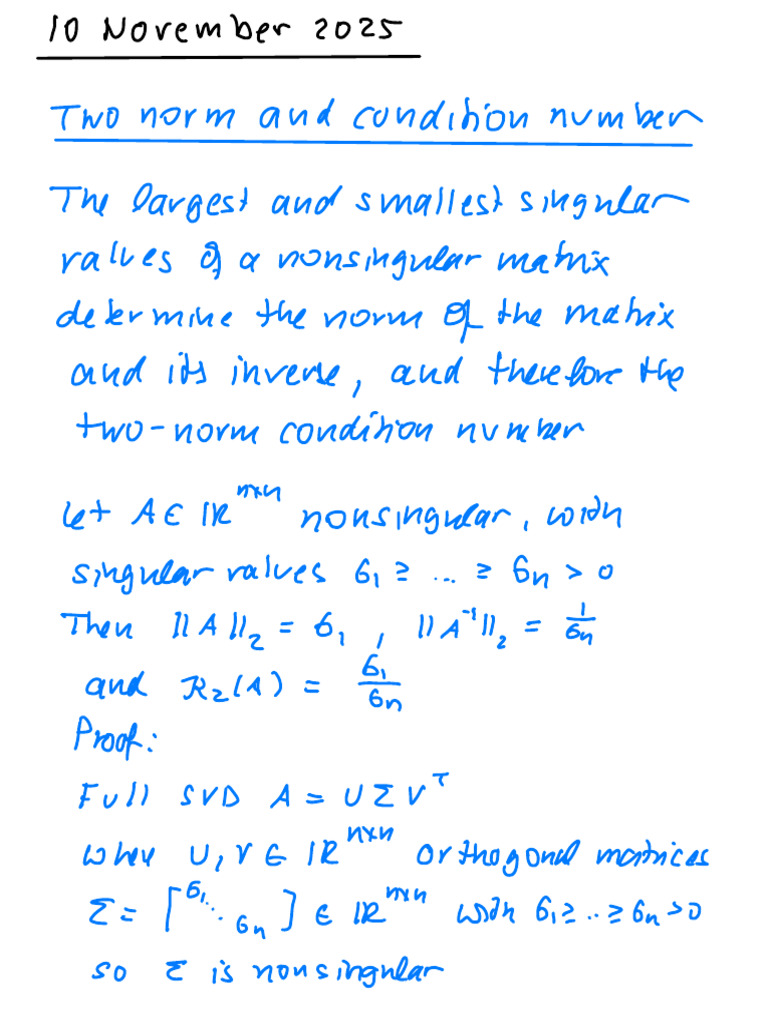 10 November 2025
Two norm and condition number
The largest and smallest singular
values of a nonsingular matrix
determine the norm of the matrix
and its inverse, and therefore the
two-norm condition number
Let A ∈ ℝⁿˣⁿ nonsingular, with
singular values σ₁ ≥ ... ≥ σₙ > 0
Then ||A||₂ = σ₁, ||A⁻¹||₂ = 1/σₙ
and κ₂(A) = σ₁/σₙ
Proof:
Full SVD A = UΣVᵀ
where U, V ∈ ℝⁿˣⁿ orthogonal matrices
Σ = [σ₁ ⋱ σₙ] ∈ ℝⁿˣⁿ with σ₁ ≥ .. ≥ σₙ > 0
so Σ is nonsingular